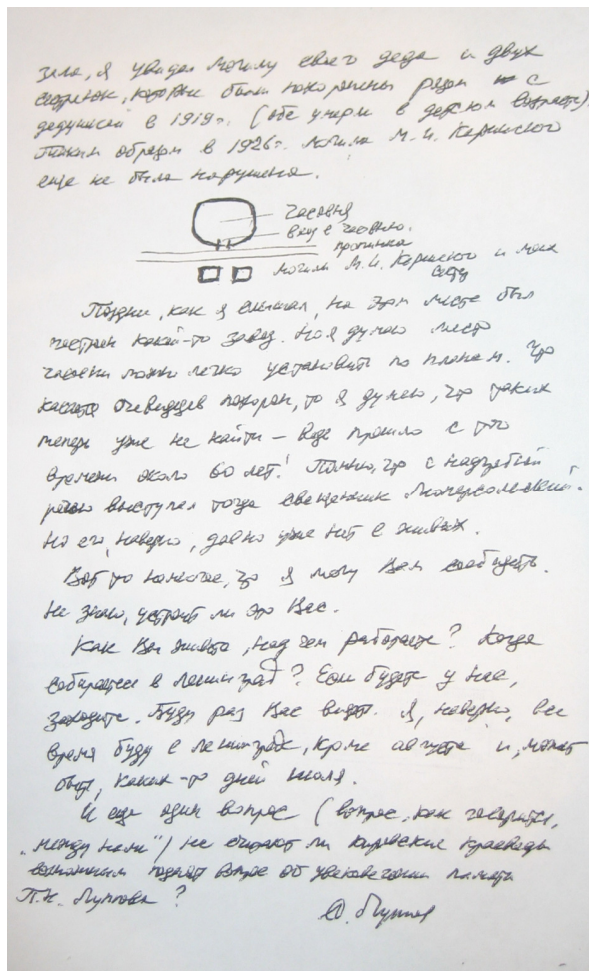 зла, я увидел могилу своего деда и двух
сестренок, которые были похоронены рядом с
дедушкой в 1919 г. (обе умерли в детском возрасте).
Таким образом в 1926 г. могила М. И. Каринского
еще не была нарушена.
Часовня
вход в часовню.
тропинка
могилы М. И. Каринского и моих
сестер
Позднее, как я слышал, на этом месте был
построен какой-то завод. Но я думаю место
часовни можно легко установить по планам. Что
касается очевидцев похорон, то я думаю, что таких
теперь уже не найти – ведь прошло с того
времени около 60 лет! Помню, что с надгробной
речью выступал тогда священник
Но его, наверно, давно уже нет в живых.
Вот то немногое, что я могу Вам сообщить.
Не знаю, устроит ли это Вас.
Как Вы живете, над чем работаете? Когда
собираетесь в Ленинград? Если будете у нас,
заходите. Буду рад Вас видеть. Я, наверно, все
время буду в Ленинграде, кроме августа и, может
быть, каких-то дней июля.
И еще один вопрос (вопрос, как говорится,
„между нами“) не считают ли кировские краеведы
возможным поднять вопрос об увековечении памяти
П. Н. Луппова?